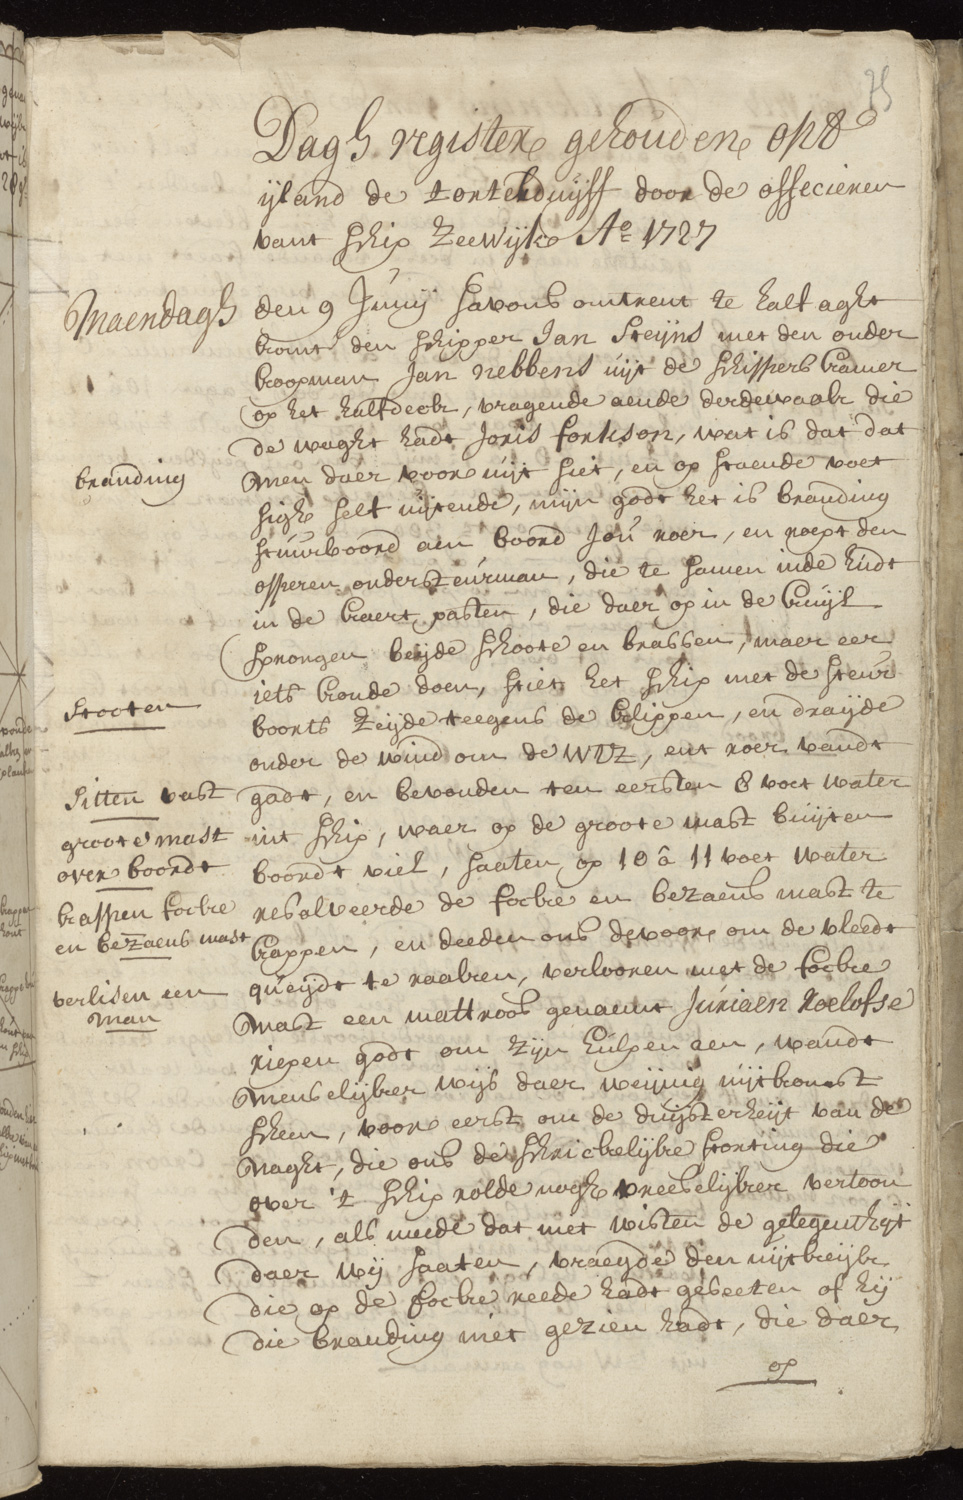 75
Dagh register gehouden op 't
ijland de tortelduijff door de offecieren
vant schip Zeewijk Ao 1727
Maendagh den 9 Junij savons omtrent te half aght
komt den schipper Jan Steijns met den onder
koopman Jan Nebbens uijt de schippers kamer
op het halfdeck, vragende aende derdewaak die
de waght hadt Joris forkson, wat is dat dat
branding
men daer vooruijt siet, en op staende voet
sigh self uijtende, mijn godt het is branding
stuurboord aen boord jou roer, en roept den
opperen onderstuurman, die te samen inde hudt
in de kaert pasten, die daer op in de kuijl
sprongen beijde schoote en brassen, maer eer
iets konde doen, stiet het schip met de stuur
stooten
boorts zeijde teegens de klippen, en draijde
onder de wind om de WTZ, ent roer vandt
Sitten vast
gadt, en bevonden ten eersten 8 voet water
groote mast
int schip, waer op de groote mast buijten
over boordt
boordt viel, saaten op 10 â 11 voet water
kappen focke
resalveerde de focke en bezaens mast te
en bezaens mast
kappen, en deeden ons devoor om de vleedt
queijdt te raaken, verlooren met de focke
verlisen een
man
mast een mattroos genaemt Juriaen Roelofse
riepen godt om zijn hulpen aen, wandt
menselijker wijs daer weijnig uijtkomst
scheen, voor eerst om de duijsterheijt van de
naght, die ons de schrickelijke storting die
over 't schip rolde nogh vreeselijker vertoon
den, als meede dat niet wisten de gelegentheijt
daer wij saaten, vraegde den uijtkeijk
die op de focke reede hadt geseeten of hij
die branding niet gezien hadt, die daer
op